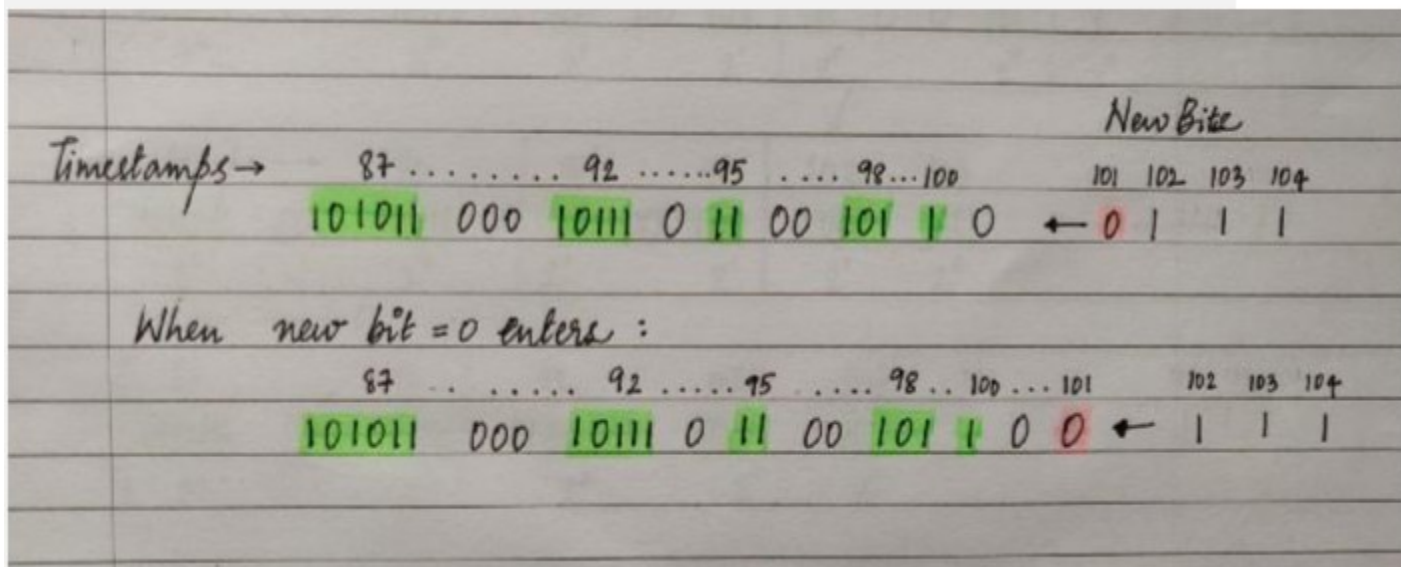 New Bite
Timestamps → 87 ......... 92 ......95 .... 98...100 101 102 103 104
101011 000 10111 0 11 00 101 1 0 ← 0 1 1 1
When new bit = 0 enters :
87 .. ...... 92 ..... 95 ..... 98.. 100 ... 101 102 103 104
101011 000 10111 0 11 00 101 1 0 0 ← 1 1 1